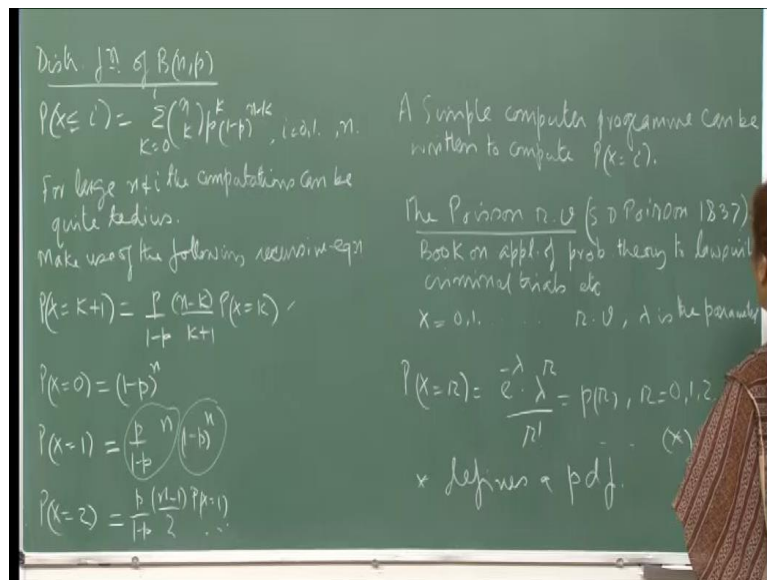 Dist. fⁿ of B(n,p)
P(X ≤ i) = Σ_{k=0}^{i} (n k) p^k (1-p)^{n-k}, i=0,1.. n.
For large n & i the computations can be
quite tedius.
Make use of the following recursive eqn
P(X=k+1) = p/(1-p) (n-k)/(k+1) P(X=k)
P(X=0) = (1-p)^n
P(X=1) = p/(1-p) n (1-p)^n
P(X=2) = p/(1-p) (n-1)/2 P(X=1)
...
A Simple computer programme can be
written to compute P(X=i).
The Poisson r.v (S D Poisson 1837)
Book on appl. of prob. theory to lawsuit
criminal trials etc
X = 0,1. . . . . r.v, λ is the parameter
P(X=r) = e^{-λ} · λ^r / r! = p(r), r=0,1,2.
. . (*)
* defines a pdf.